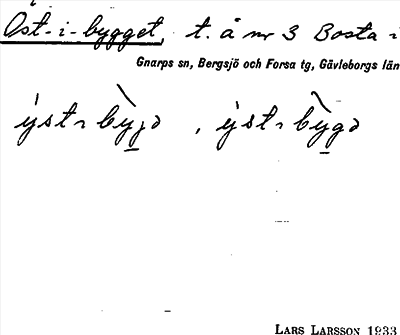 Öst-i-bygget, t. å nr 3 Bosta i
Gnarps sn, Bergsjö och Forsa tg, Gävleborgs län
LARS LARSSON 1933